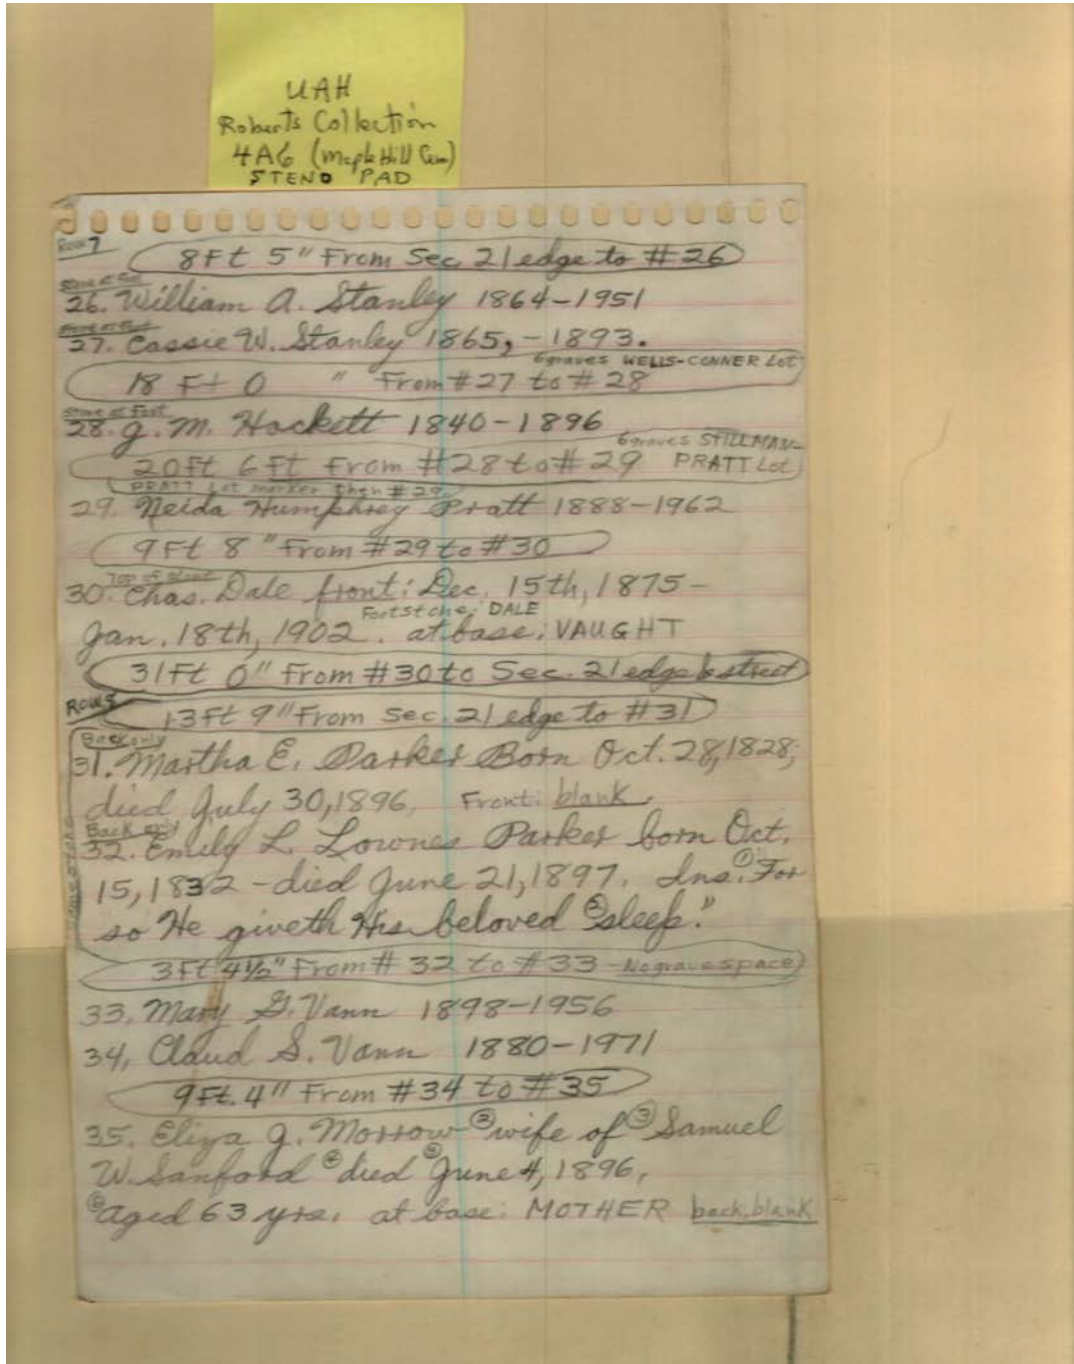 UAH
Roberts Collection
4A6 (Maple Hill Cem)
STENO PAD
Row 7
8Ft 5" From Sec. 21 edge to #26
Stone at Foot
26. William A. Stanley 1864-1951
Stone at Foot
27. Cassie W. Stanley 1865,-1893.
6 graves WELLS-CONNER Lot
18 Ft 0 " From #27 to #28
Stone at Foot
28. G. M. Hackett 1840-1896
6 graves STILLMAN-
20Ft 6Ft From #28 to #29 PRATT Lot
PRATT Lot marker then #29
29. Neida Humphrey Pratt 1888-1962
9Ft 8" From #29 to #30
Top of
30. Chas. Dale front: Dec. 15th, 1875-
Footstone: DALE
Jan. 18th, 1902. at base: VAUGHT
31Ft 0" From #30 to Sec. 21 edge & street
ROW
13Ft 9" From Sec. 21 edge to #31
Back only
31. Martha E. Parker Born Oct. 28, 1828,
died July 30, 1896, Front: blank
Back only
32. Emily L. Lownes Parker born Oct.
15, 1832 - died June 21, 1897. Ins: ①For
so He giveth His beloved ②sleep."
3Ft 4½" From #32 to #33 - No grave space
33. Mary G. Vann 1898-1956
34, Claud S. Vann 1880-1971
9Ft. 4" From #34 to #35
35. Eliza J. Morrow ②wife of ③Samuel
W. Sanford ④died ⑤June 4, 1896,
⑥aged 63 yrs. at base: MOTHER back, blank